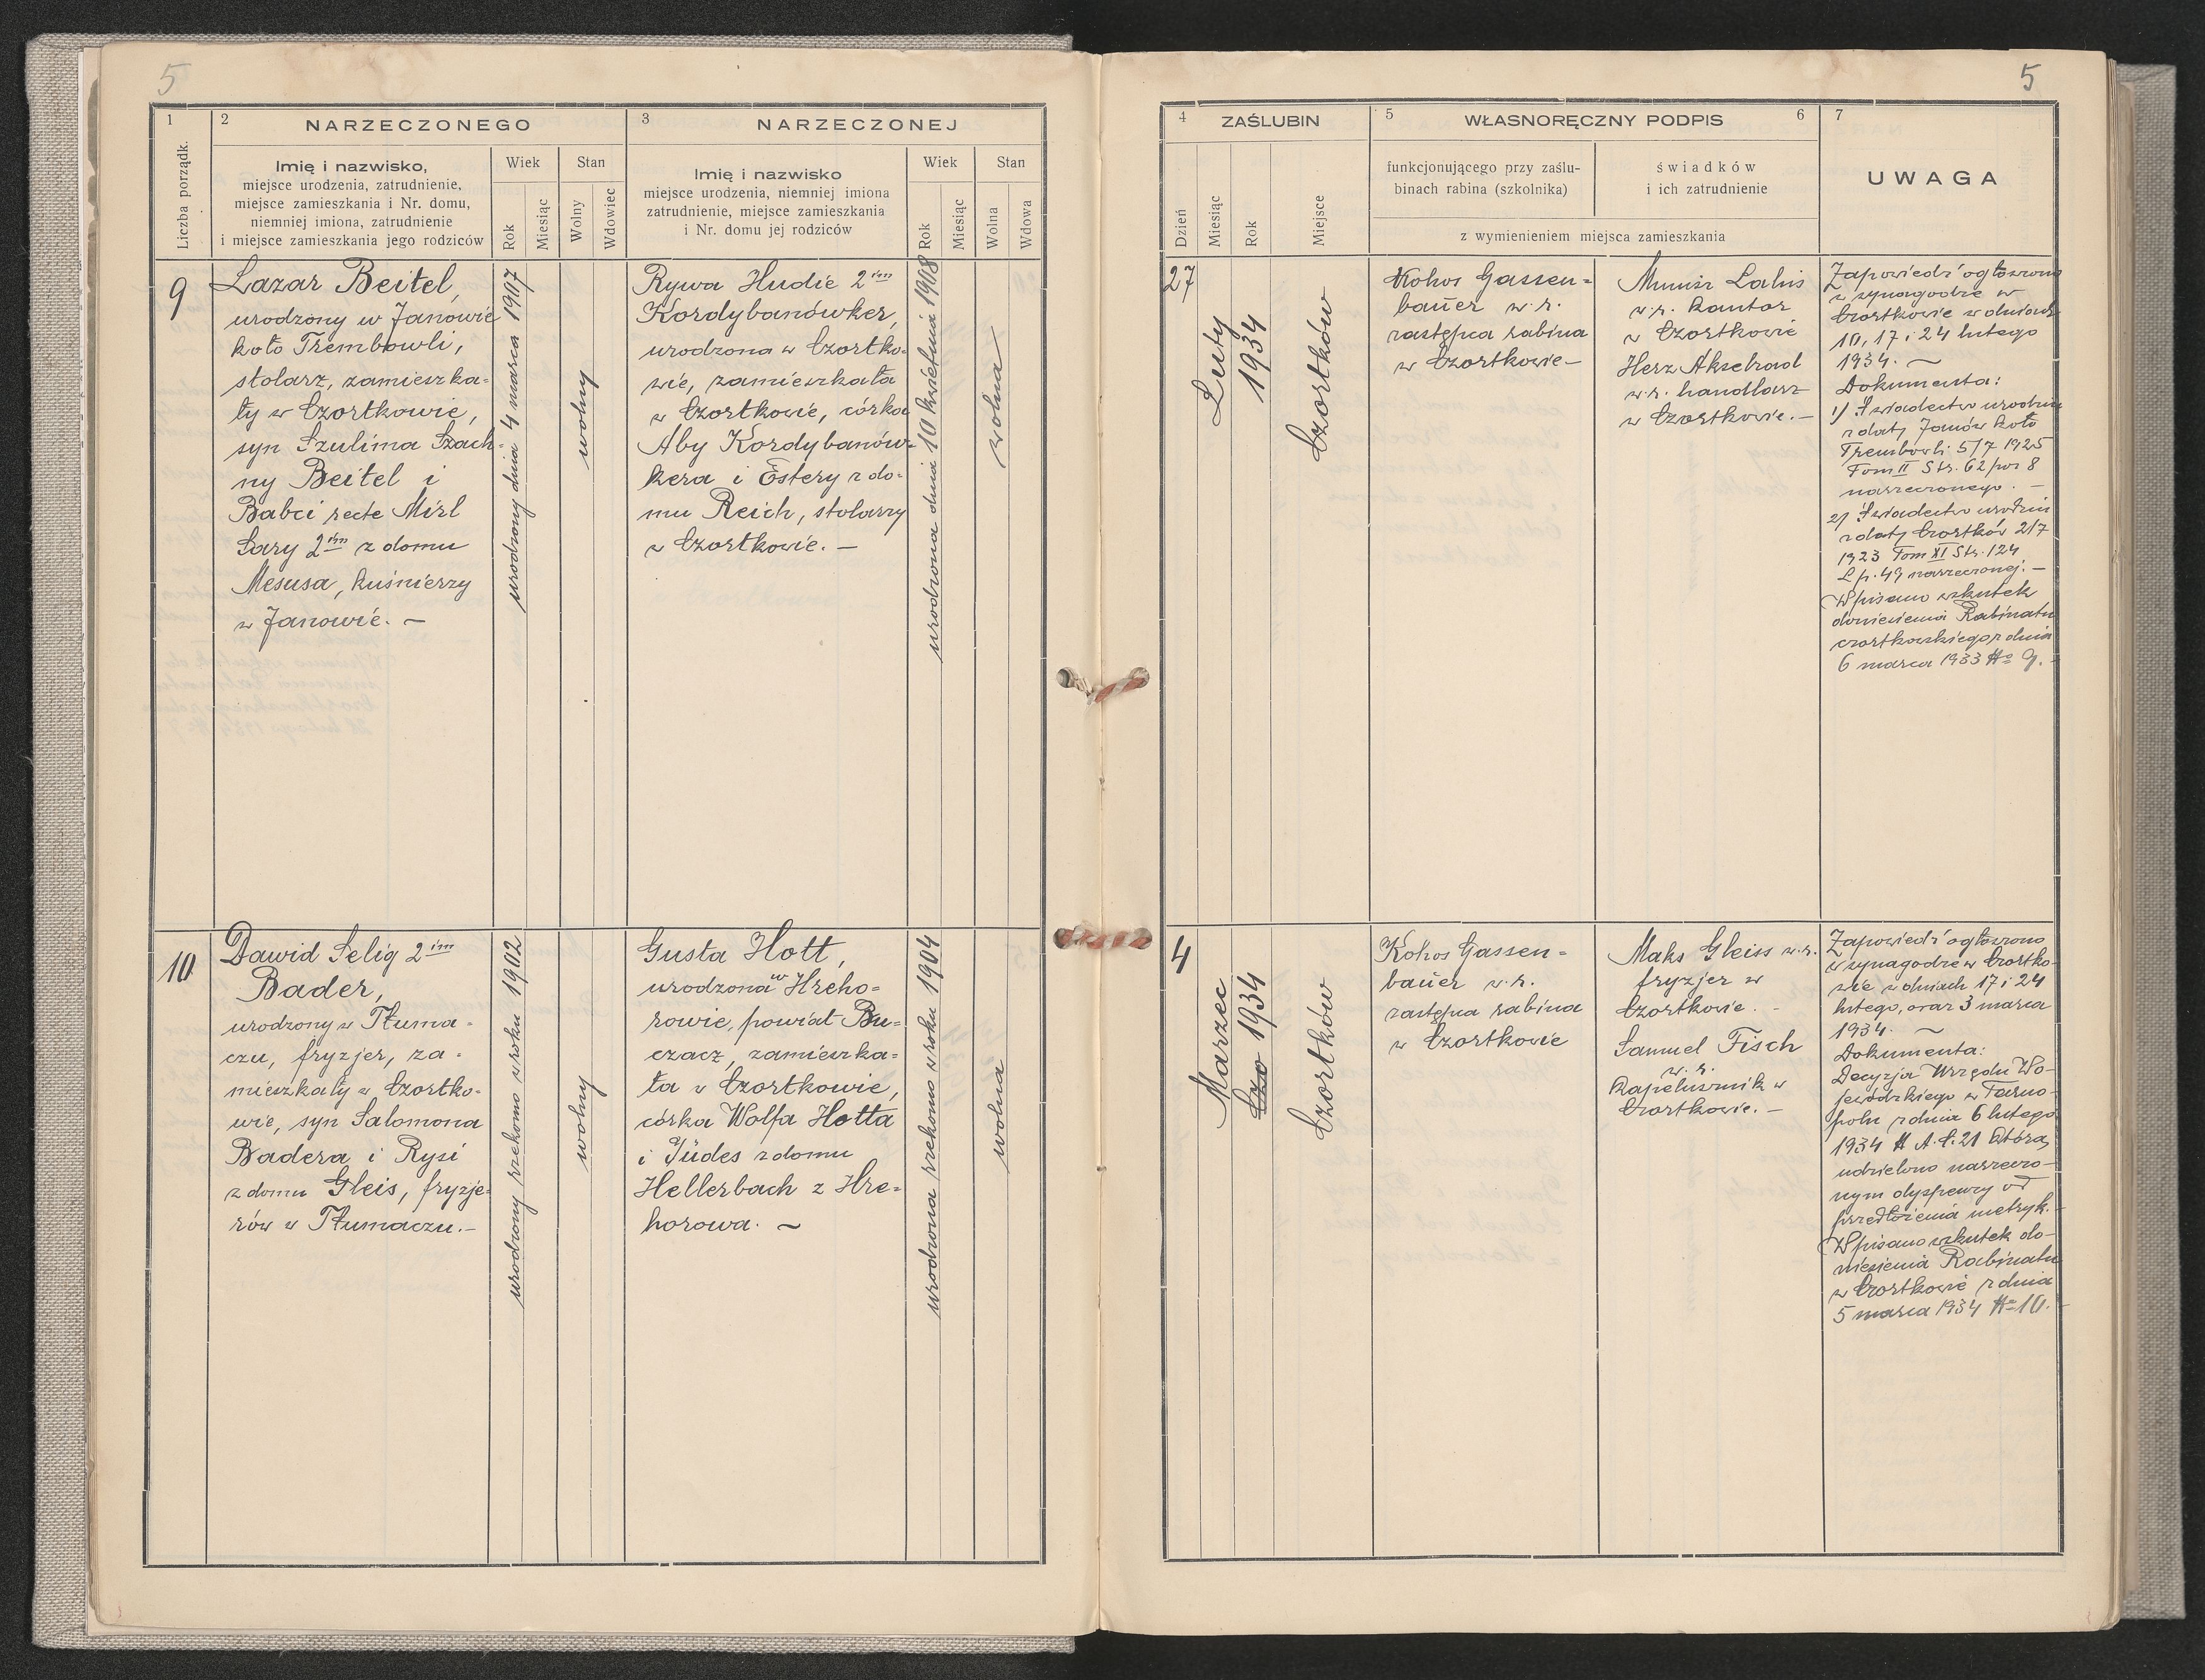 5
1
2
NARZECZONEGO
3
NARZECZONEJ
Liczba porządk.
Imię i nazwisko,
miejsce urodzenia, zatrudnienie,
miejsce zamieszkania i Nr. domu,
niemniej imiona, zatrudnienie
i miejsce zamieszkania jego rodziców
Wiek
Rok
Miesiąc
Stan
Wolny
Wdowiec
Imię i nazwisko
miejsce urodzenia, niemniej imiona
zatrudnienie, miejsce zamieszkania
i Nr. domu jej rodziców
Wiek
Rok
Miesiąc
Stan
Wolna
Wdowa
9
Lazar Beitel,
urodzony w Janowie
koło Trembowli,
stolarz, zamieszka=
ły w Czortkowie,
syn Szulima Szach=
ny Beitel i
Babci recte Mirl
Sary 2im z domu
Mesusa, kuśnierzy
w Janowie. —
urodzony dnia 4 marca 1907
wolny
Rywa Hudie 2im
Kordybanówker,
urodzona w Czortko=
wie, zamieszkała
w Czortkowie, córka
Aby Kordybanów=
kera i Estery z do=
mu Reich, stolarzy
w Czortkowie. —
urodzona dnia 10 kwietnia 1908
wolna
10
Dawid Selig 2im
Bader,
urodzony w Tłuma=
czu, fryzjer, za=
mieszkały w Czortko=
wie, syn Salomona
Badera i Rysi
z domu Gleis, fryzje=
rów w Tłumaczu.—
urodzony rzekomo w roku 1902
wolny
Gusta Hott,
urodzona w Hreho=
rowie, powiat Bu=
czacz, zamieszka=
ła w Czortkowie,
córka Wolfa Hotta
i Jüdes z domu
Hellerbach z Hre=
horowa. ~
urodzona rzekomo w roku 1904
wolna
5
4
ZAŚLUBIN
5
WŁASNORĘCZNY PODPIS
6
7
Dzień
Miesiąc
Rok
Miejsce
funkcjonującego przy zaślu-
binach rabina (szkolnika)
świadków
i ich zatrudnienie
z wymienieniem miejsca zamieszkania
UWAGA
27
Luty
1934
Czortków
Kohos Gassen=
bauer w.r.
zastępca rabina
w Czortkowie—
Munisz Lahis
w.r. kantor
w Czortkowie
Herz Akselrad
w.r. handlarz
w Czortkowie.—
Zapowiedzi ogłoszono
w synagodze w
Czortkowie w dniach
10, 17 i 24 lutego
1934. ~
Dokumenta:
1) Świadectwo urodzin
z daty Janów koło
Trembowli 5/7 1925
Tom II Str. 62 poz 8
narzeczonego. —
2) Świadectwo urodzin
z daty Czortków 2/7
1923 Tom XI Str. 124
L.p. 49 narzeczonej.—
Wpisano wskutek
doniesienia Rabinatu
czortkowskiego z dnia
6 marca 1933 No 9.—
4
Marzec
Czo 1934
Czortków
Kohos Gassen=
bauer w.r.
zastępca rabina
w Czortkowie
Maks Gleiss w.r.
fryzjer w
Czortkowie. -
Samuel Fisch
w.r.
kapelusznik w
Czortkowie.—
Zapowiedzi ogłoszono
w synagodze w Czortko=
wie w dniach 17 i 24
lutego, oraz 3 marca
1934. ~
Dokumenta:
Decyzja Urzędu Wo-
jewódzkiego w Tarno-
polu z dnia 6 lutego
1934 A.S.21 którą
udzielono narzeczo-
nym dyspenzy od
przedłożenia metryk.-
Wpisano wskutek do-
niesienia Rabinatu
w Czortkowie z dnia
5 marca 1934 No 10.-